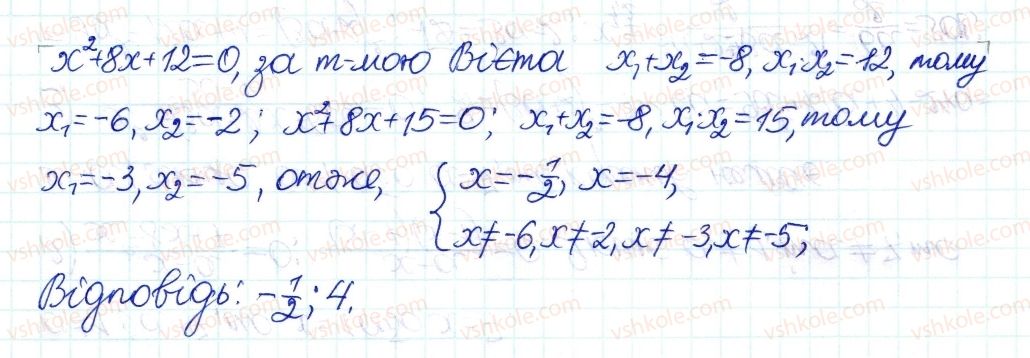 x²+8x+12=0, за т-мою Вієта x₁+x₂=-8, x₁·x₂=12, тому
x₁=-6, x₂=-2; x²+8x+15=0; x₁+x₂=-8, x₁·x₂=15, тому
x₁=-3, x₂=-5, отже, { x=-1/2, x=-4,
x≠-6, x≠-2, x≠-3, x≠-5;
Відповідь: -1/2; 4.